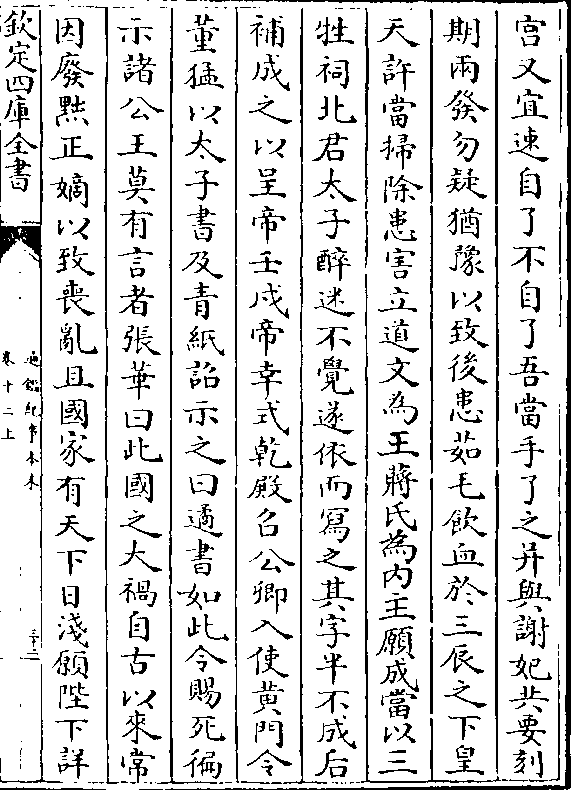 宫又宜速自了不自了吾當手了之并與謝妃共要刻
期兩發勿疑猶豫以致後患茹毛飲血於三辰之下皇
天許當掃除患害立道文為王蔣氏為内主願成當以三
牲祠北君太子醉迷不覺遂依而寫之其字半不成后
補成之以呈帝壬戌帝幸式乾殿召公卿入使黄門令
董猛以太子書及青紙詔示之曰遹書如此令賜死徧
示諸公王莫有言者張華曰此國之大禍自古以來常
因廢黜正嫡以致喪亂且國家有天下日淺願陛下詳
欽定四庫全書
通鑑紀事本末
卷十二上
三十二